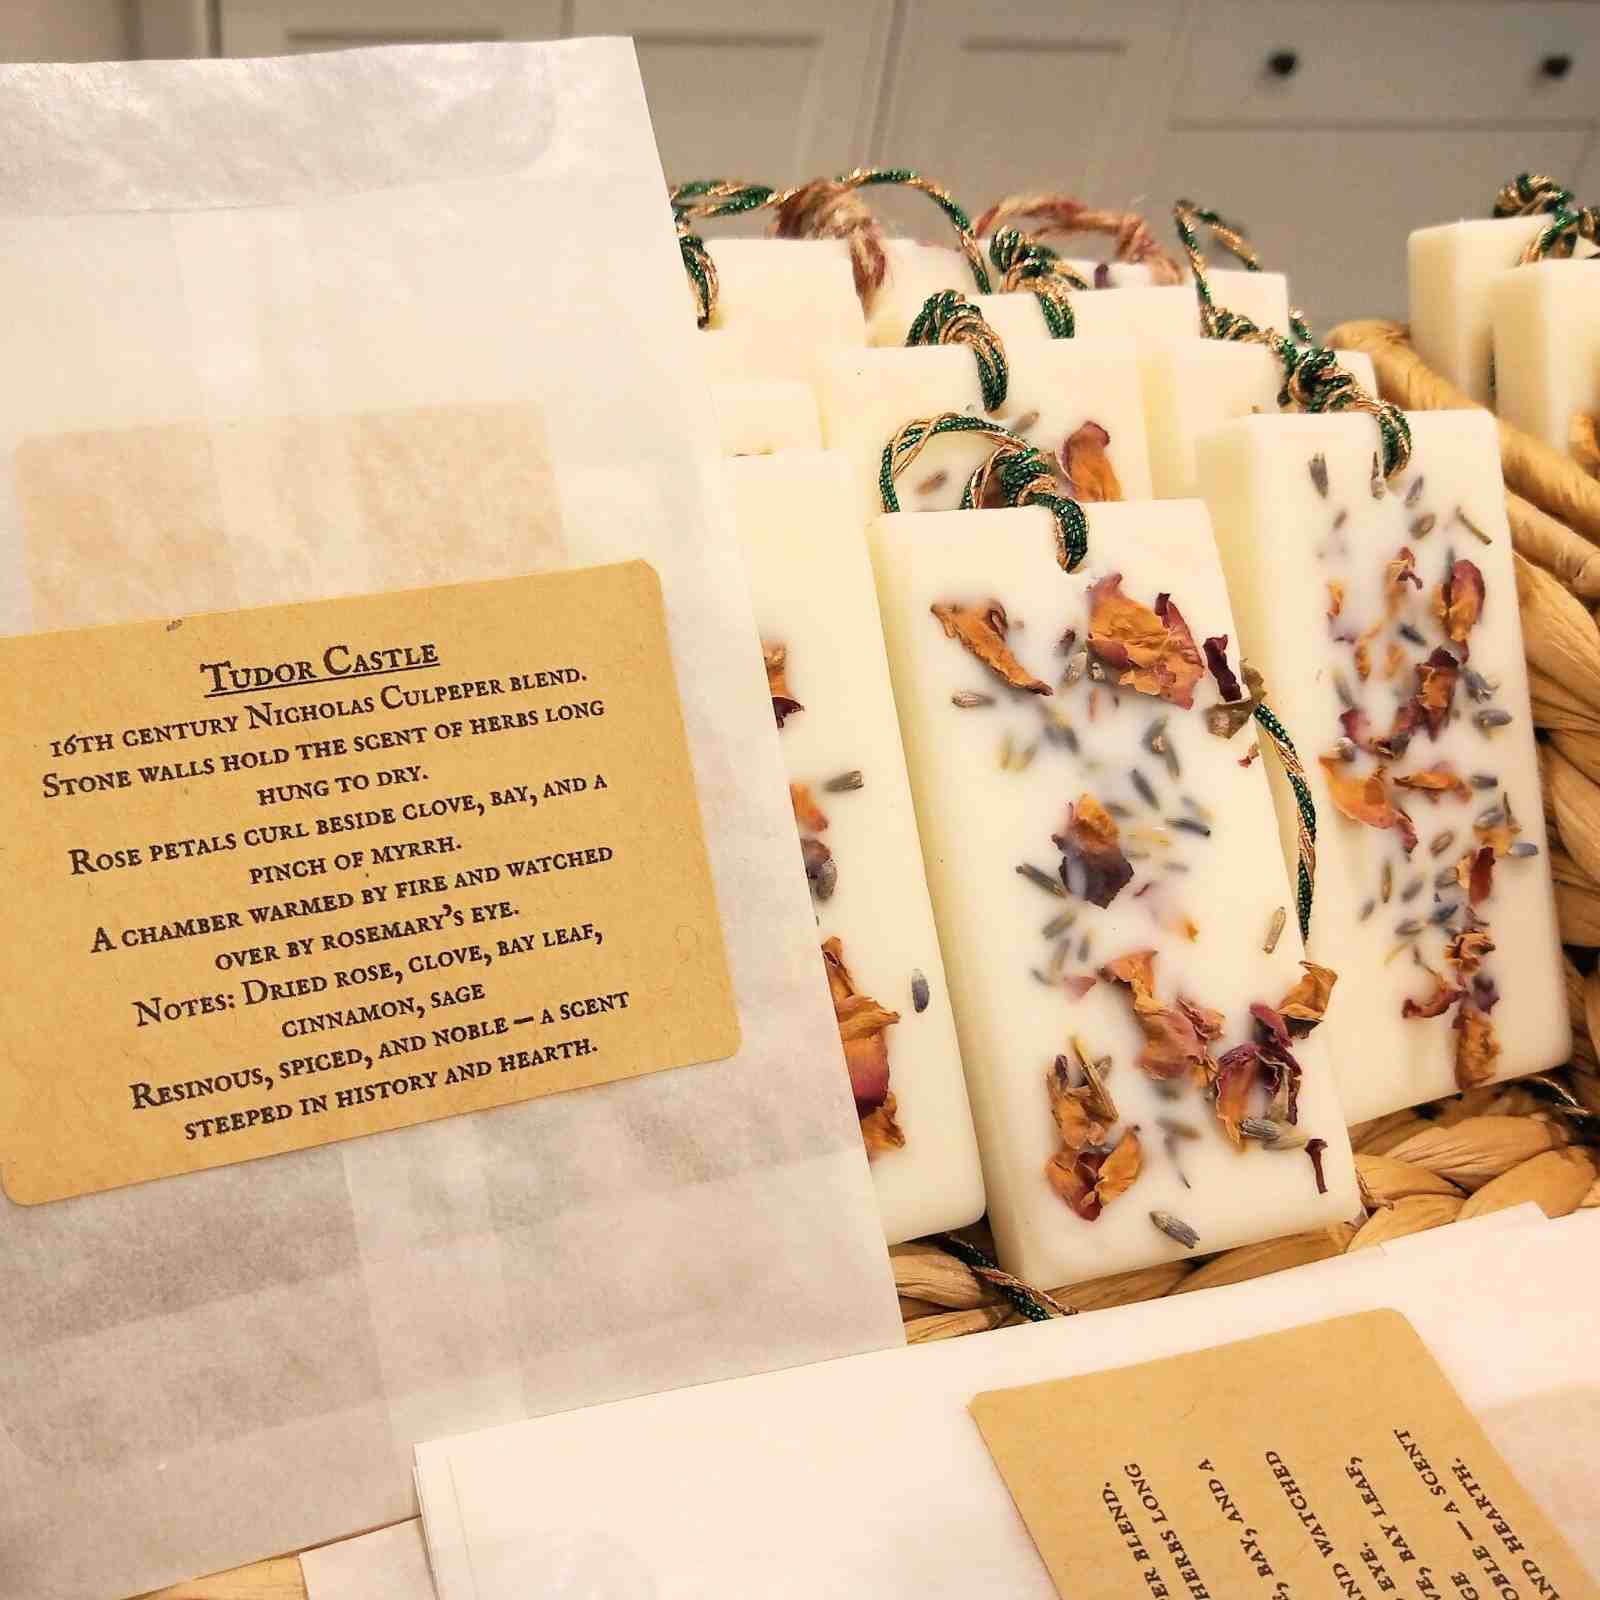 Tudor Castle
16th century Nicholas Culpeper blend.
Stone walls hold the scent of herbs long
hung to dry.
Rose petals curl beside clove, bay, and a
pinch of myrrh.
A chamber warmed by fire and watched
over by rosemary's eye.
Notes: Dried rose, clove, bay leaf,
cinnamon, sage
Resinous, spiced, and noble — a scent
steeped in history and hearth.
blend.
herbs long
bay, and a
and watched
eye.
bay leaf,
— a scent
hearth.